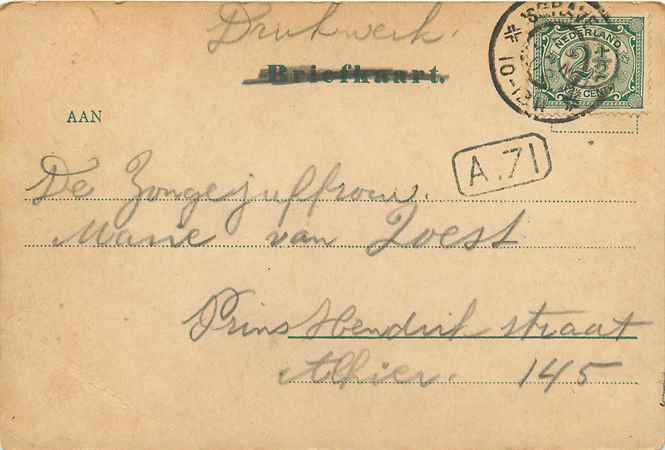 Drukwerk.
Briefkaart.
NEDERLAND
2½
2½ CENT
10-12V
AAN
A.71
De Jongejuffrouw.
Marie van Zoest
Prins Hendrik straat
Alhier. 145